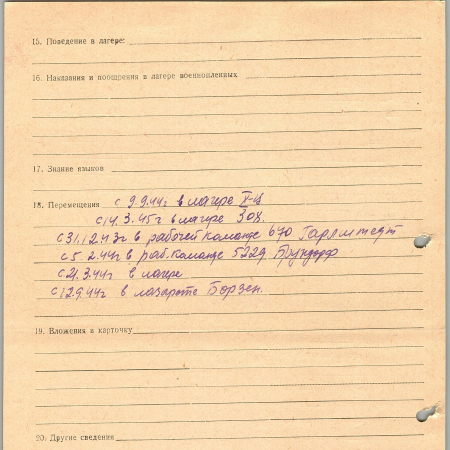 15. Поведение в лагере:
16. Наказания и поощрения в лагере военнопленных
17. Знание языков
18. Перемещения с 9.9.44г в лагере X-В
с 14.3.45г в лагере
с 31.12.43г в рабочей команде 670
с 5.2.44г в раб. команде 5229
с 21.3.44г в лагере
с 12.9.44г в лазарете Борзен.
19. Вложения в карточку
20. Другие сведения